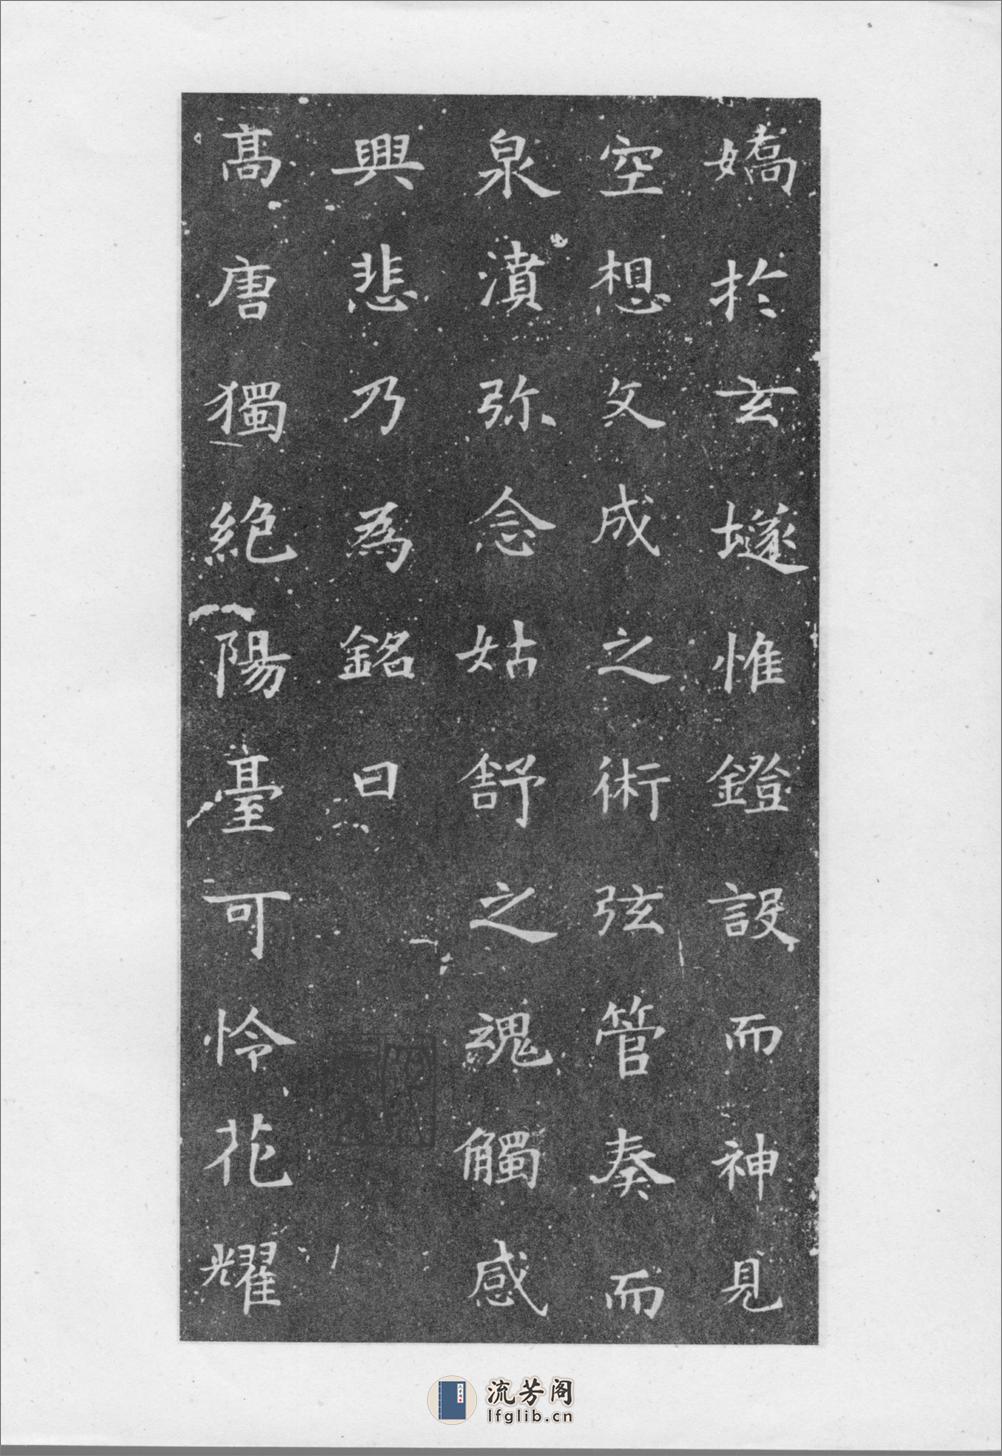 嬌於玄壝惟鐙設而神見
空想文成之術弦管奏而
泉濆弥念姑舒之魂觸感
興悲乃為銘曰
髙唐獨絶陽臺可怜花耀
流芳阁
lfglib.cn